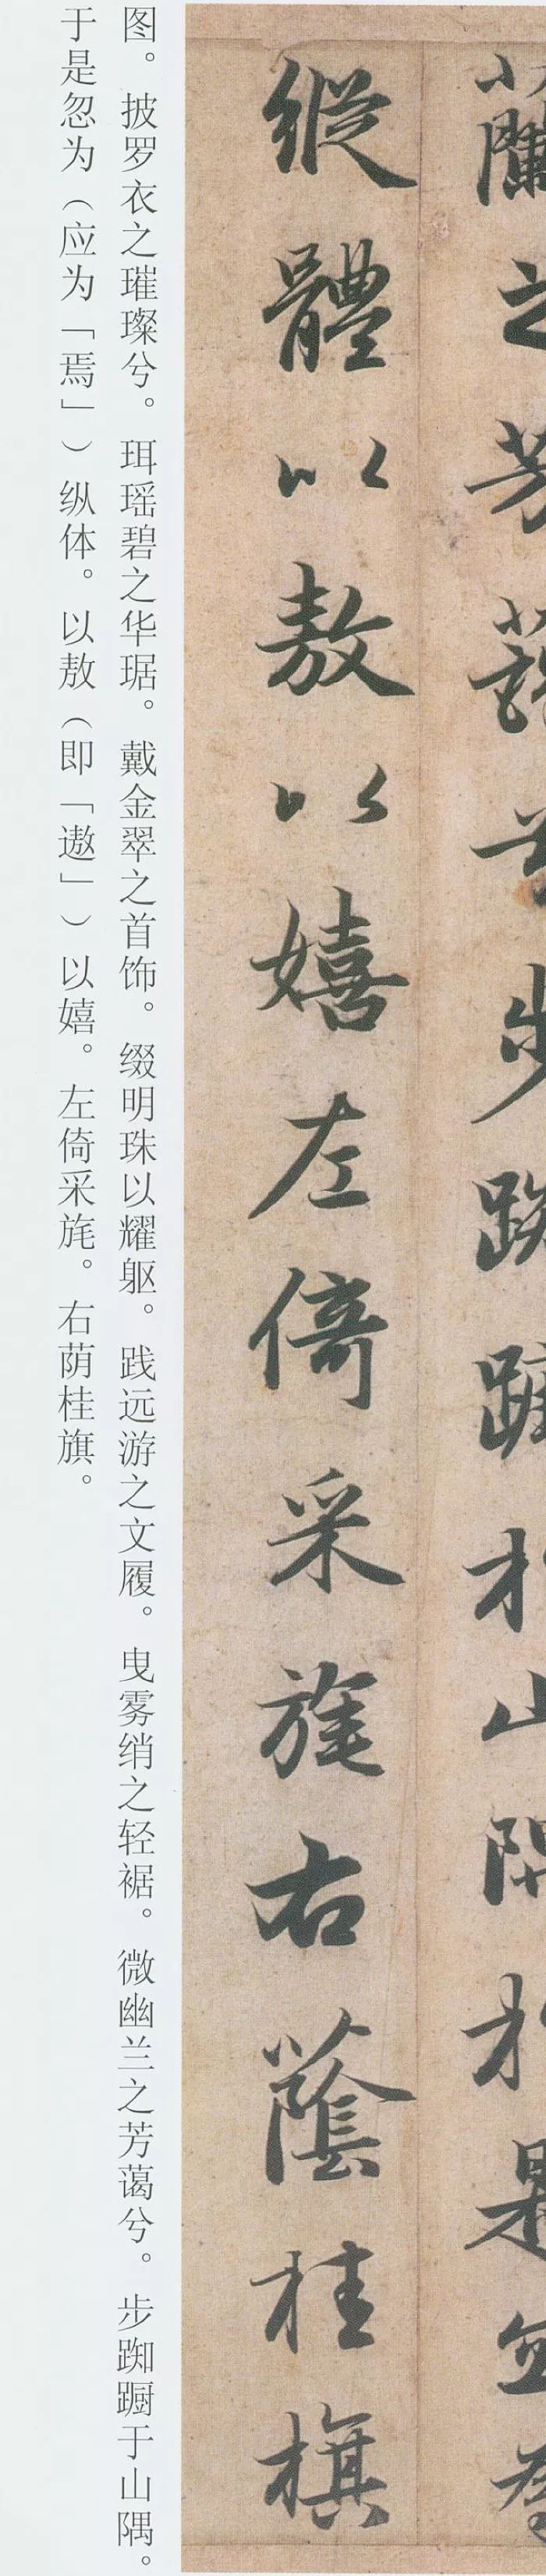 蘭之芳藹兮步踟蹰於山隅於是忽為
縱體以敖以嬉左倚采旄右蔭桂旗
图。披罗衣之璀璨兮。珥瑶碧之华琚。戴金翠之首饰。缀明珠以耀躯。践远游之文履。曳雾绡之轻裾。微幽兰之芳蔼兮。步踟蹰于山隅。
于是忽为（应为「焉」）纵体。以敖（即「遨」）以嬉。左倚采旄。右荫桂旗。